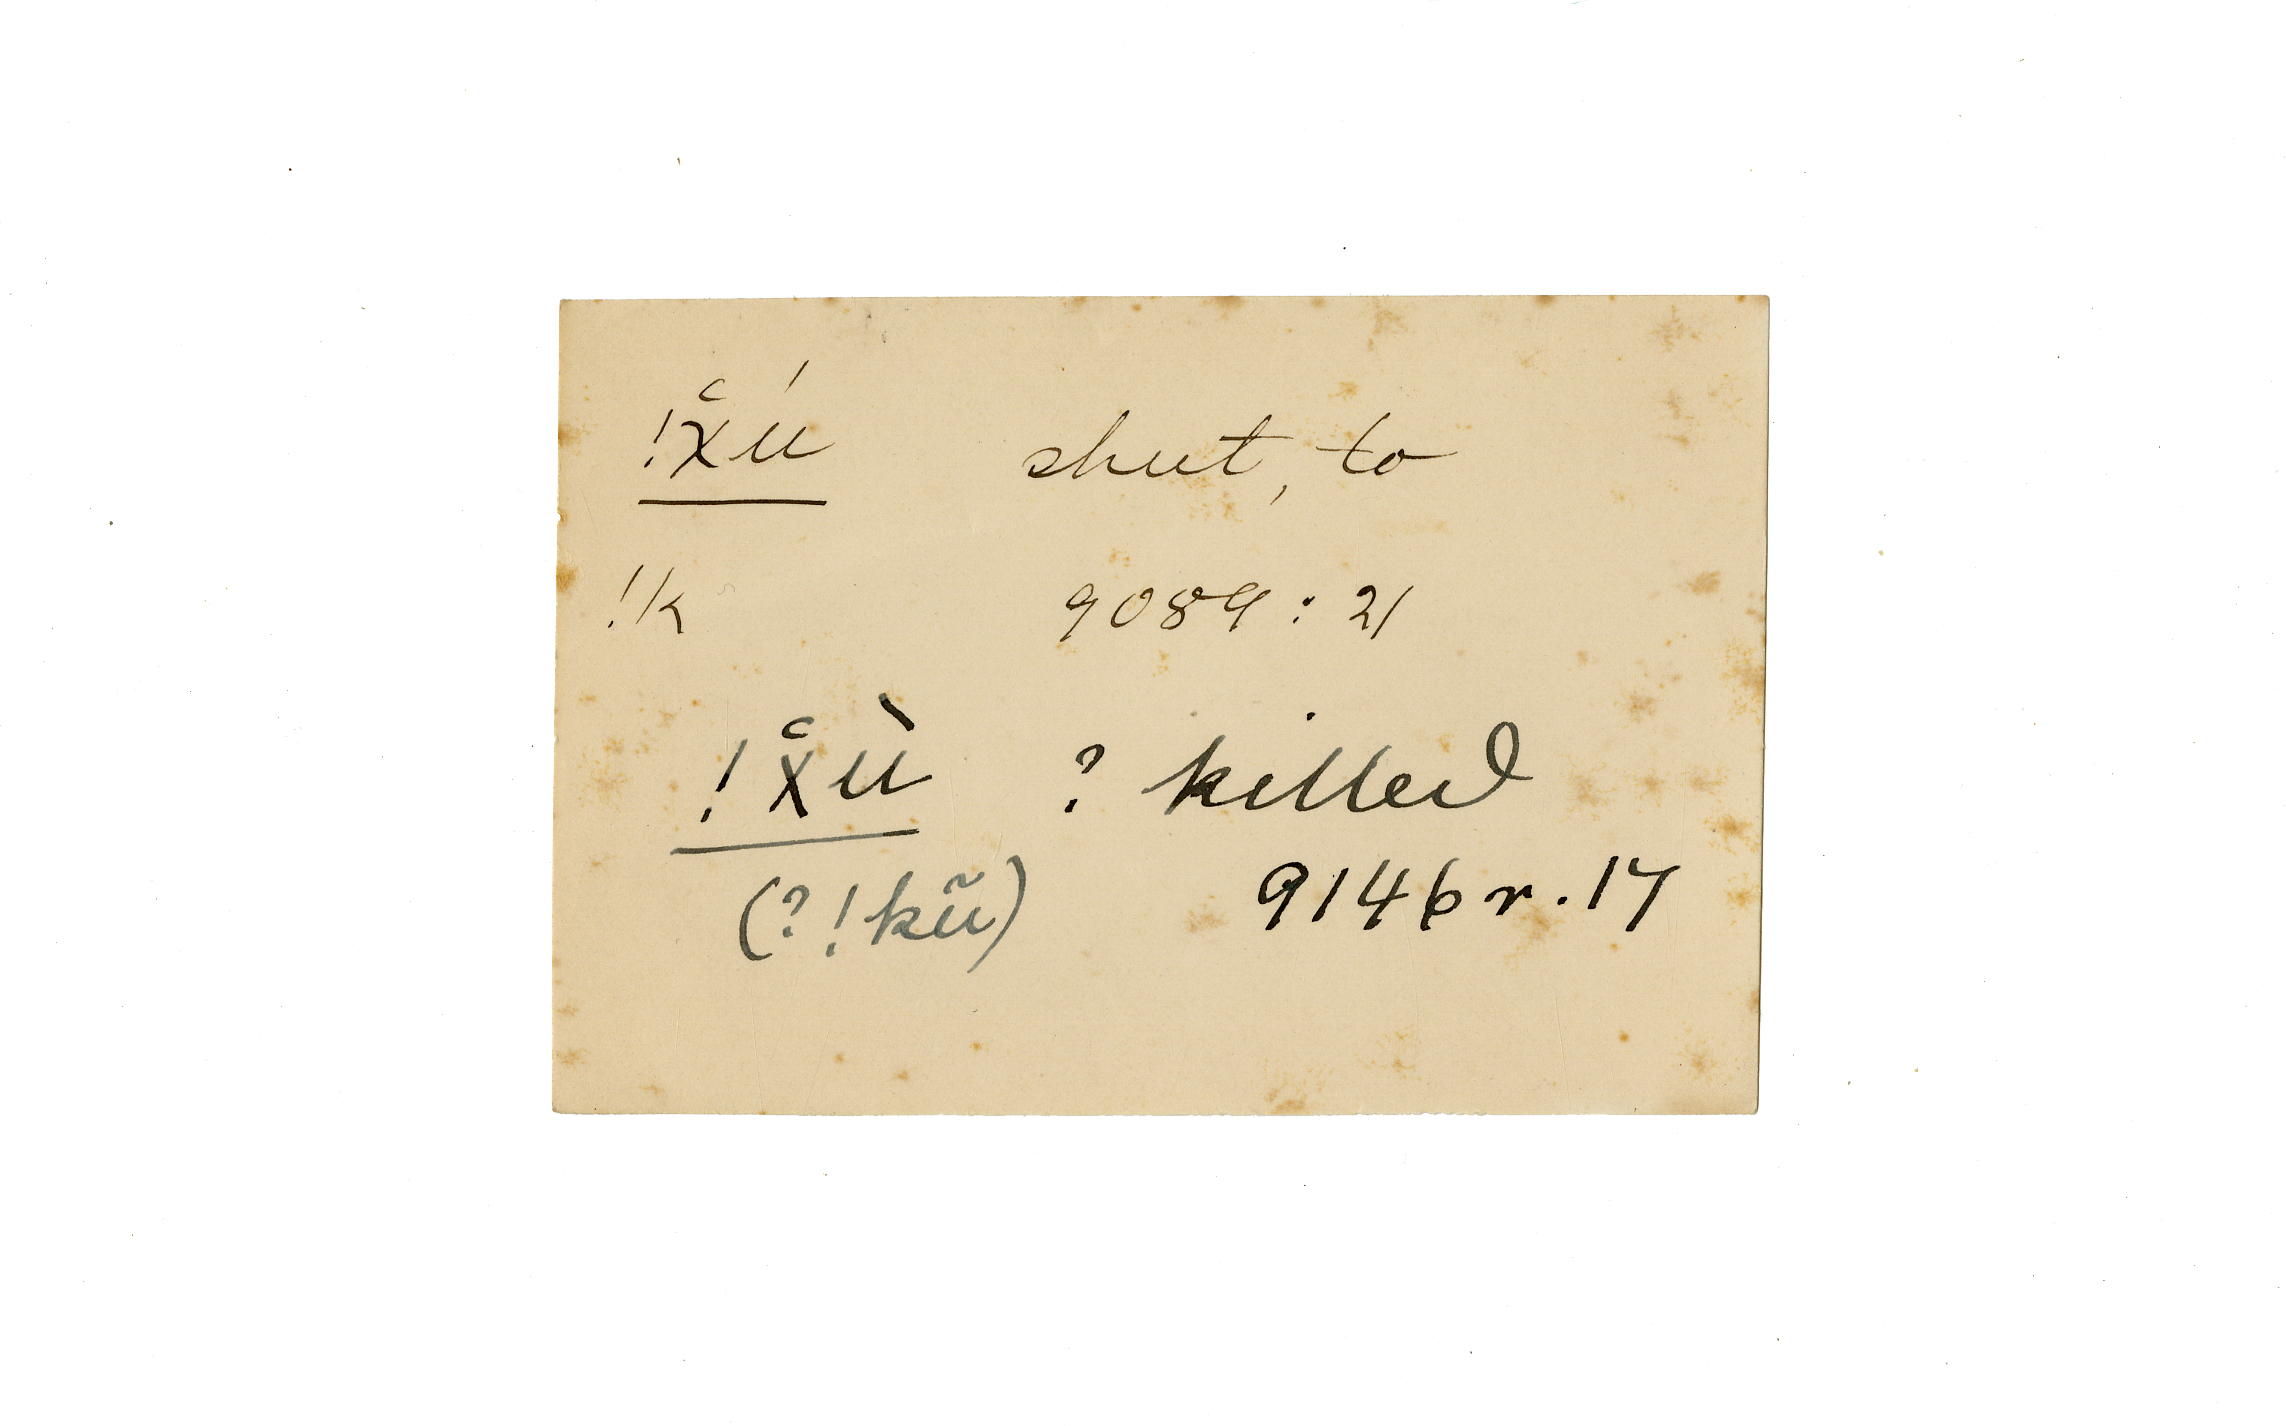 !x̆ú shut, to
!k 9089 : 21
!x̆ù ? killed
(?!kũ) 9146 r. 17